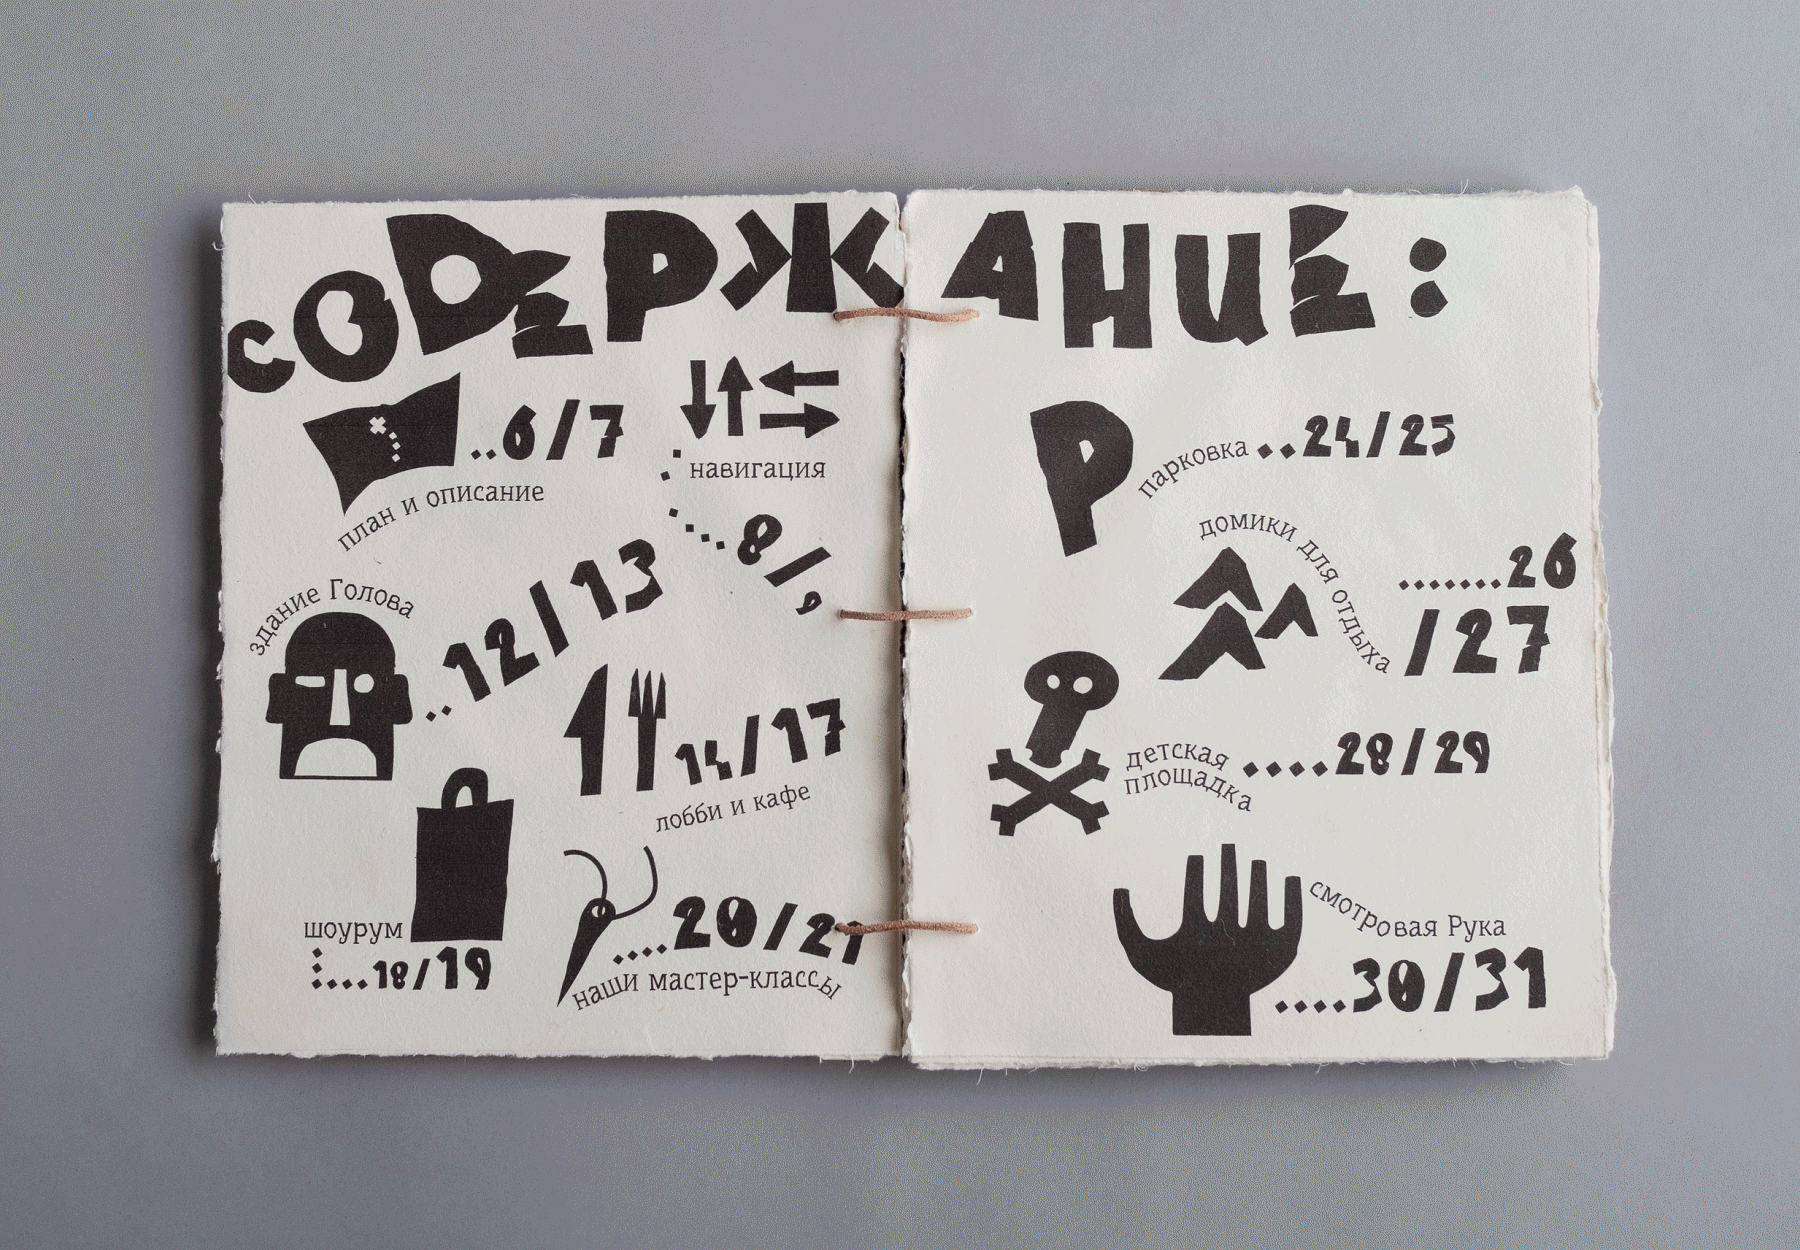 СОДЕРЖАНИЕ:
..6/7
план и описание
навигация
....8/9
здание Голова
..12/13
14/17
лобби и кафе
шоурум
....18/19
....20/21
наши мастер-классы
Р
парковка ..24/25
домики для отдыха
.......26
/27
детская
площадка
....28/29
смотровая Рука
....30/31